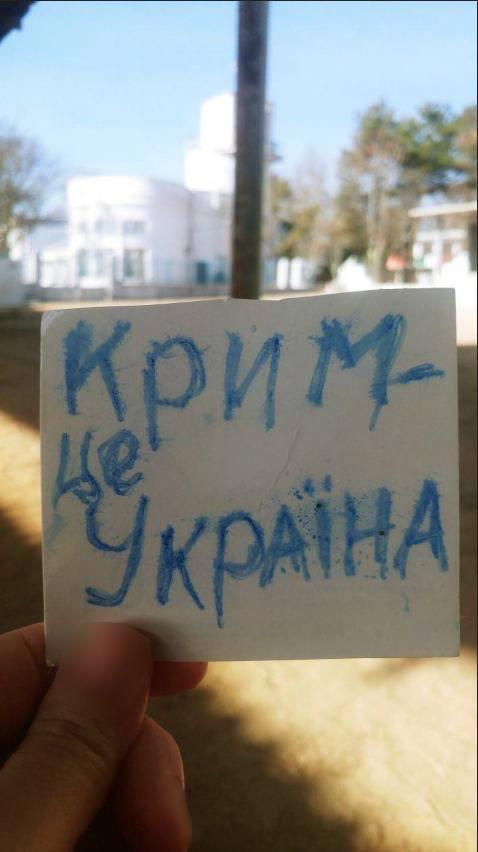 Крим-
це
УКРАЇНА